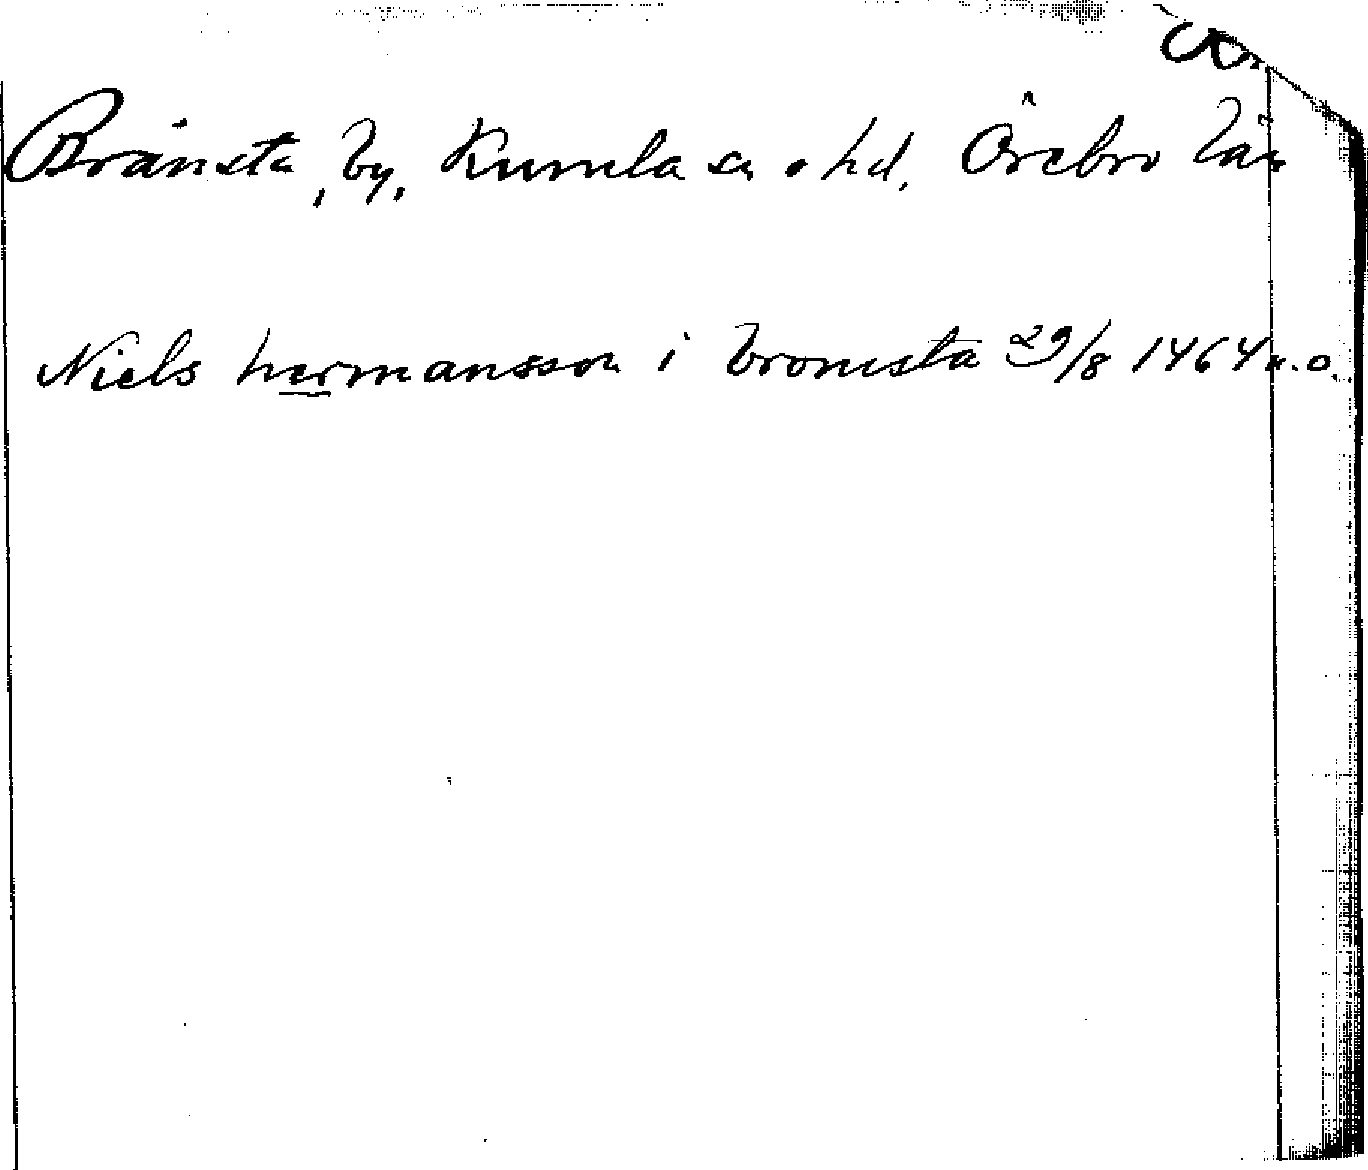 Brånsta, by, Kumla sn o hd, Örebro län
Niels hermansson i bronesta 29/8 1464 u.o.